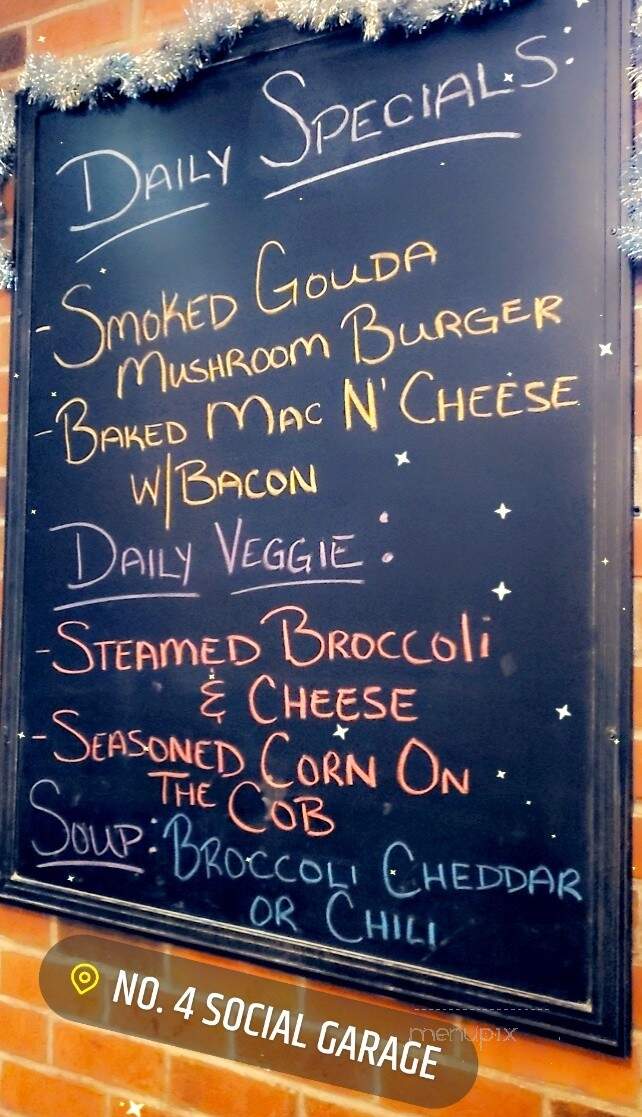 DAILY SPECIALS:
- SMOKED GOUDA
MUSHROOM BURGER
- BAKED MAC N' CHEESE
W/BACON
DAILY VEGGIE:
- STEAMED BROCCOLi
& CHEESE
- SEASONED CORN ON
THE COB
SOUP: BROCCOLI CHEDDAR
OR CHILI
NO. 4 SOCIAL GARAGE
menupix